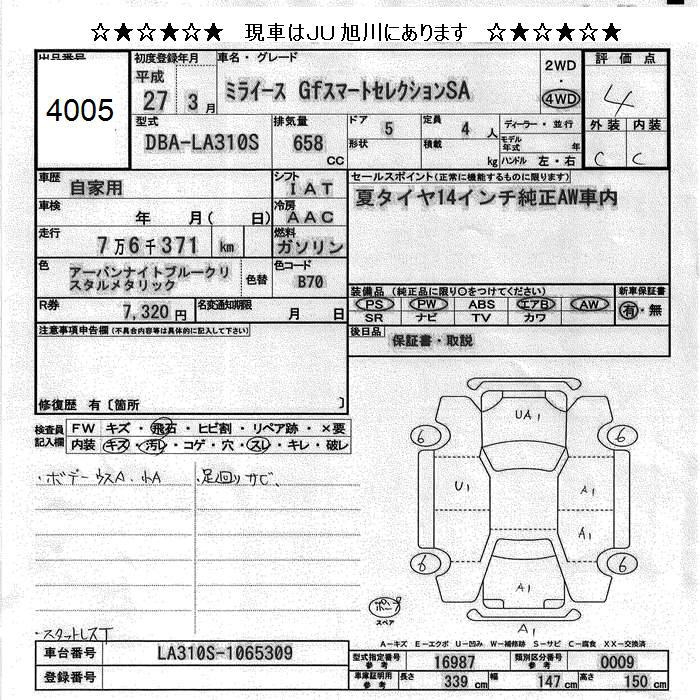 ☆★☆★☆★ 現車はJU旭川にあります ☆★☆★☆★
出品番号 初度登録年月 車名・グレード 2WD・4WD 評価点
4005 平成27 3月 ミライース GfスマートセレクションSA 4
型式 排気量 ドア 5 定員 4人 ディーラー・並行 外装 内装
DBA-LA310S 658cc 形状 積載 kg モデル年式 年 ハンドル 左・右 C C
車歴 自家用 シフト IAT セールスポイント(正常に機能するものに限ります)
車検 年 月( 日) 冷房 AAC 夏タイヤ14インチ純正AW車内
走行 7万6千371 km 燃料 ガソリン
色 アーバンナイトブルークリスタルメタリック 色替 色コード B70
装備品(純正品に限り〇をつけてください) 新車保証書
PS PW ABS エアB AW 有・無
SR ナビ TV カワ
R券 7,320円 名変通知期限 月 日
後日品 保証書・取説
注意事項申告欄(不具合内容等は具体的に記入して下さい)
修復歴 有〔箇所 〕
検査員記入欄 FW キズ・飛石・ヒビ割・リペア跡・×要
内装 キズ・汚レ・コゲ・穴・スレ・キレ・破レ
・ボデーウスA.小A ・足回りサビ
UA1
6 6
U1 A1
A1
6 6
A1
A1
ポンプ
スペア
・スタットレスT
A-キズ E-エクボ U-凹み W-補修跡 S-サビ C-腐食 XX-交換済
車台番号 LA310S-1065309
登録番号
型式指定番号 参考 16987 類別区分番号 参考 0009
車庫証明用 参考 長さ 339cm 幅 147cm 高さ 150cm